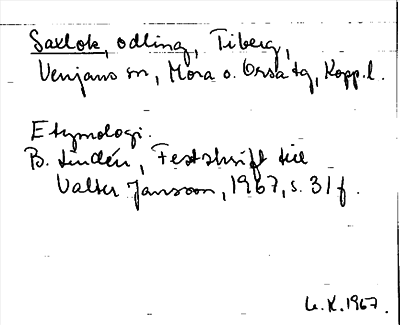 Saxlok, odling, Tiberg,
Venjans sn, Mora o. Orsa tg, Kopp.l.
Etymologi.
B. Lindén, Festskrift till
Valter Jansson, 1967, s. 31 f.
L.K. 1967.